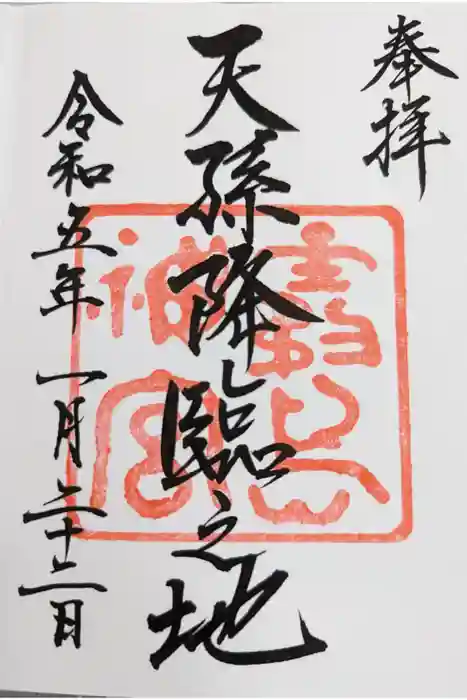 奉拝
天孫降臨之地
令和五年一月二十二日
神宮